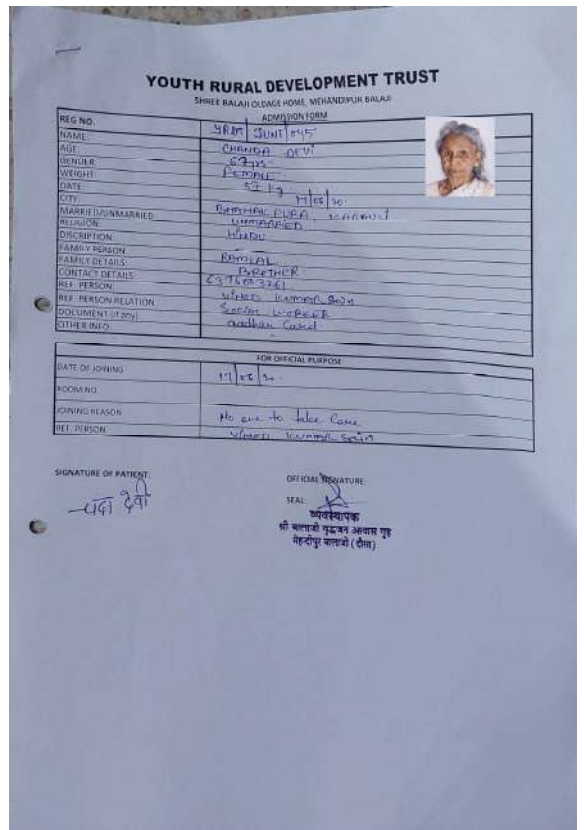 YOUTH RURAL DEVELOPMENT TRUST
SHREE BALAJI OLDAGE HOME, MEHANDIPUR BALAJI
ADMISSION FORM
REG NO. YRDT/JUNE/045
NAME: CHANDA DEVI
AGE: 67 yrs.
GENDER: FEMALE
WEIGHT: 57 kg
DATE 17/06/20.
CITY KARAULI
MARRIED/UNMARRIED UNMARRIED
RELIGION: HINDU
DISCRIPTION:
FAMILY PERSON: RAMLAL
FAMILY DETAILS: BROTHER
CONTACT DETAILS:
REF. PERSON: VINOD KUMAR SAIN
REF. PERSON RELATION SOCIAL WORKER
DOCUMENT (if any) aadhar Card
OTHER INFO
FOR OFFICIAL PURPOSE
DATE OF JOINING 17/06/20.
ROOM NO.
JOINING REASON No one to take Care
REF. PERSON VINOD KUMAR SAIN
SIGNATURE OF PATIENT:
OFFICIAL SIGNATURE
देवी
SEAL:
व्यवस्थापक
श्री बालाजी वृद्धजन आवास गृह
मेहन्दीपुर बालाजी (दौसा)